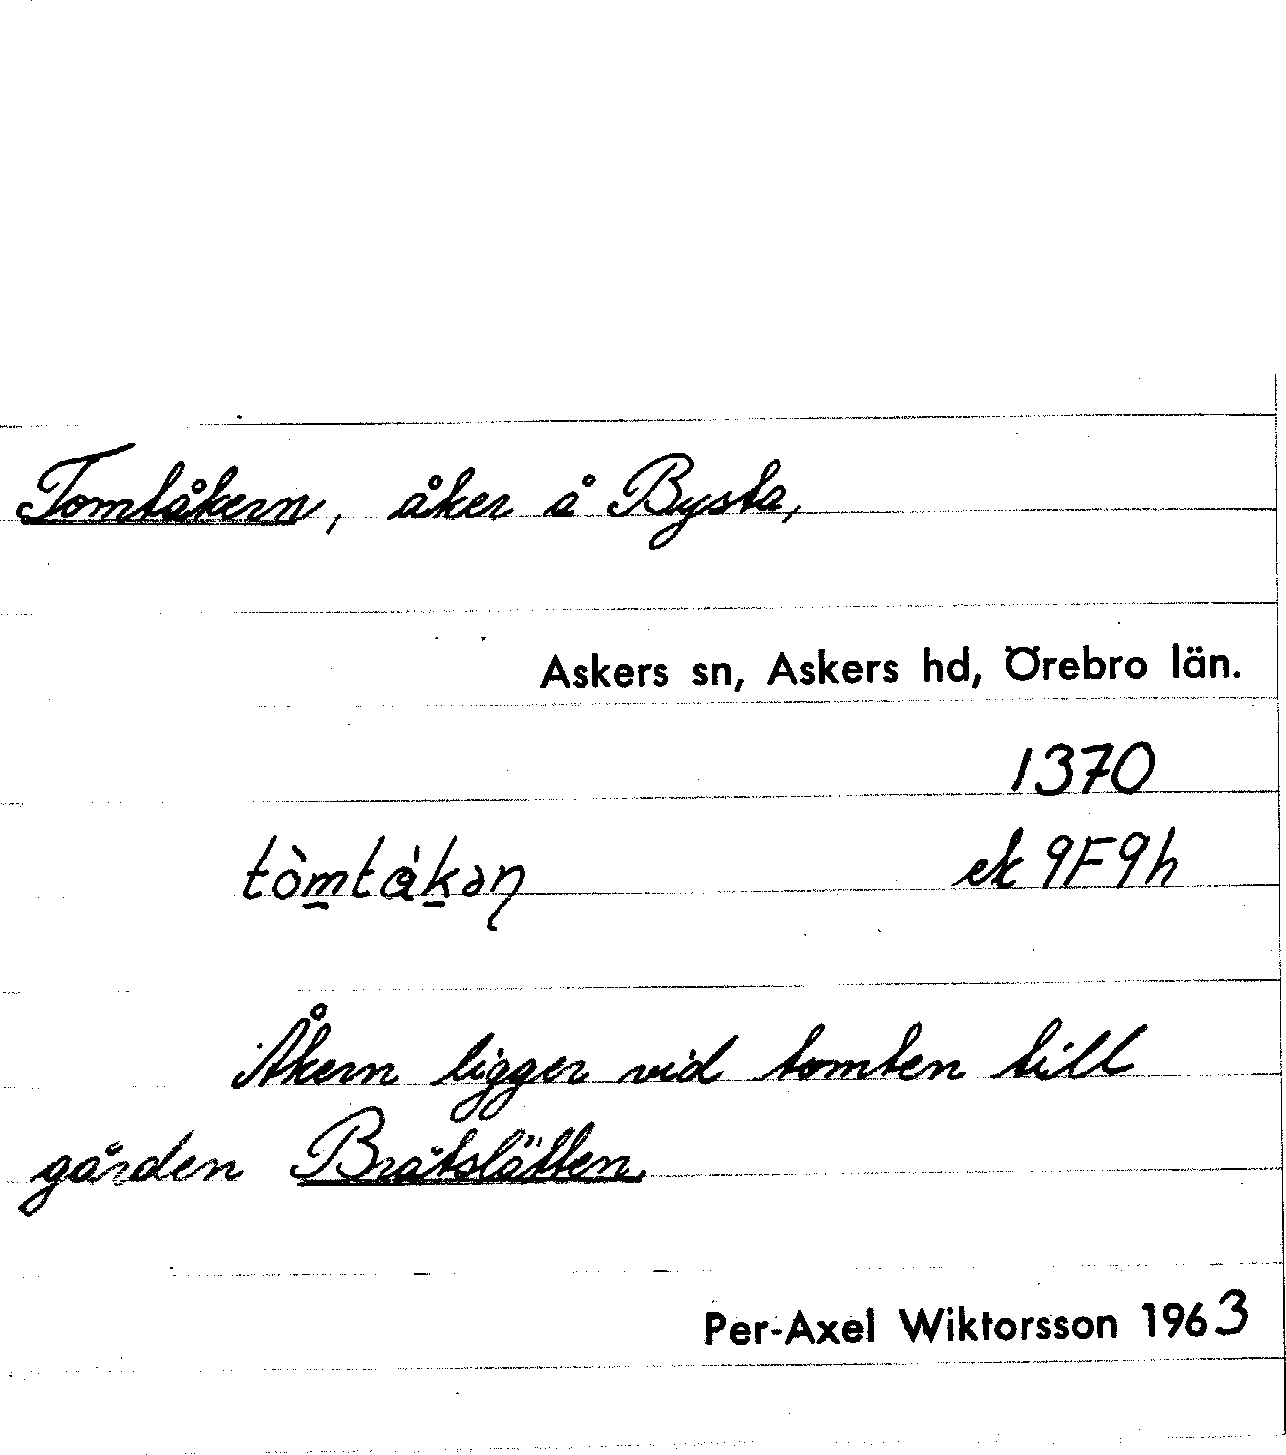 Tomtåkern, åker å Bysta,
Askers sn, Askers hd, Örebro län.
1370
tòm̲tåk̲əɳ ek 9F9h
Åkern ligger vid tomten till
gården Bråtslätten.
Per-Axel Wiktorsson 1963